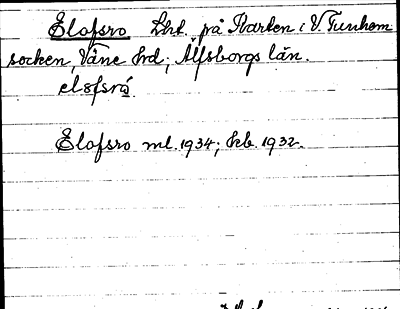 Elofsro Lht. på Starken i V. Tunhem
socken, Väne hrd; Älfsborgs län.
elofsró.
Elofsro ml. 1934; Ekb. 1932.